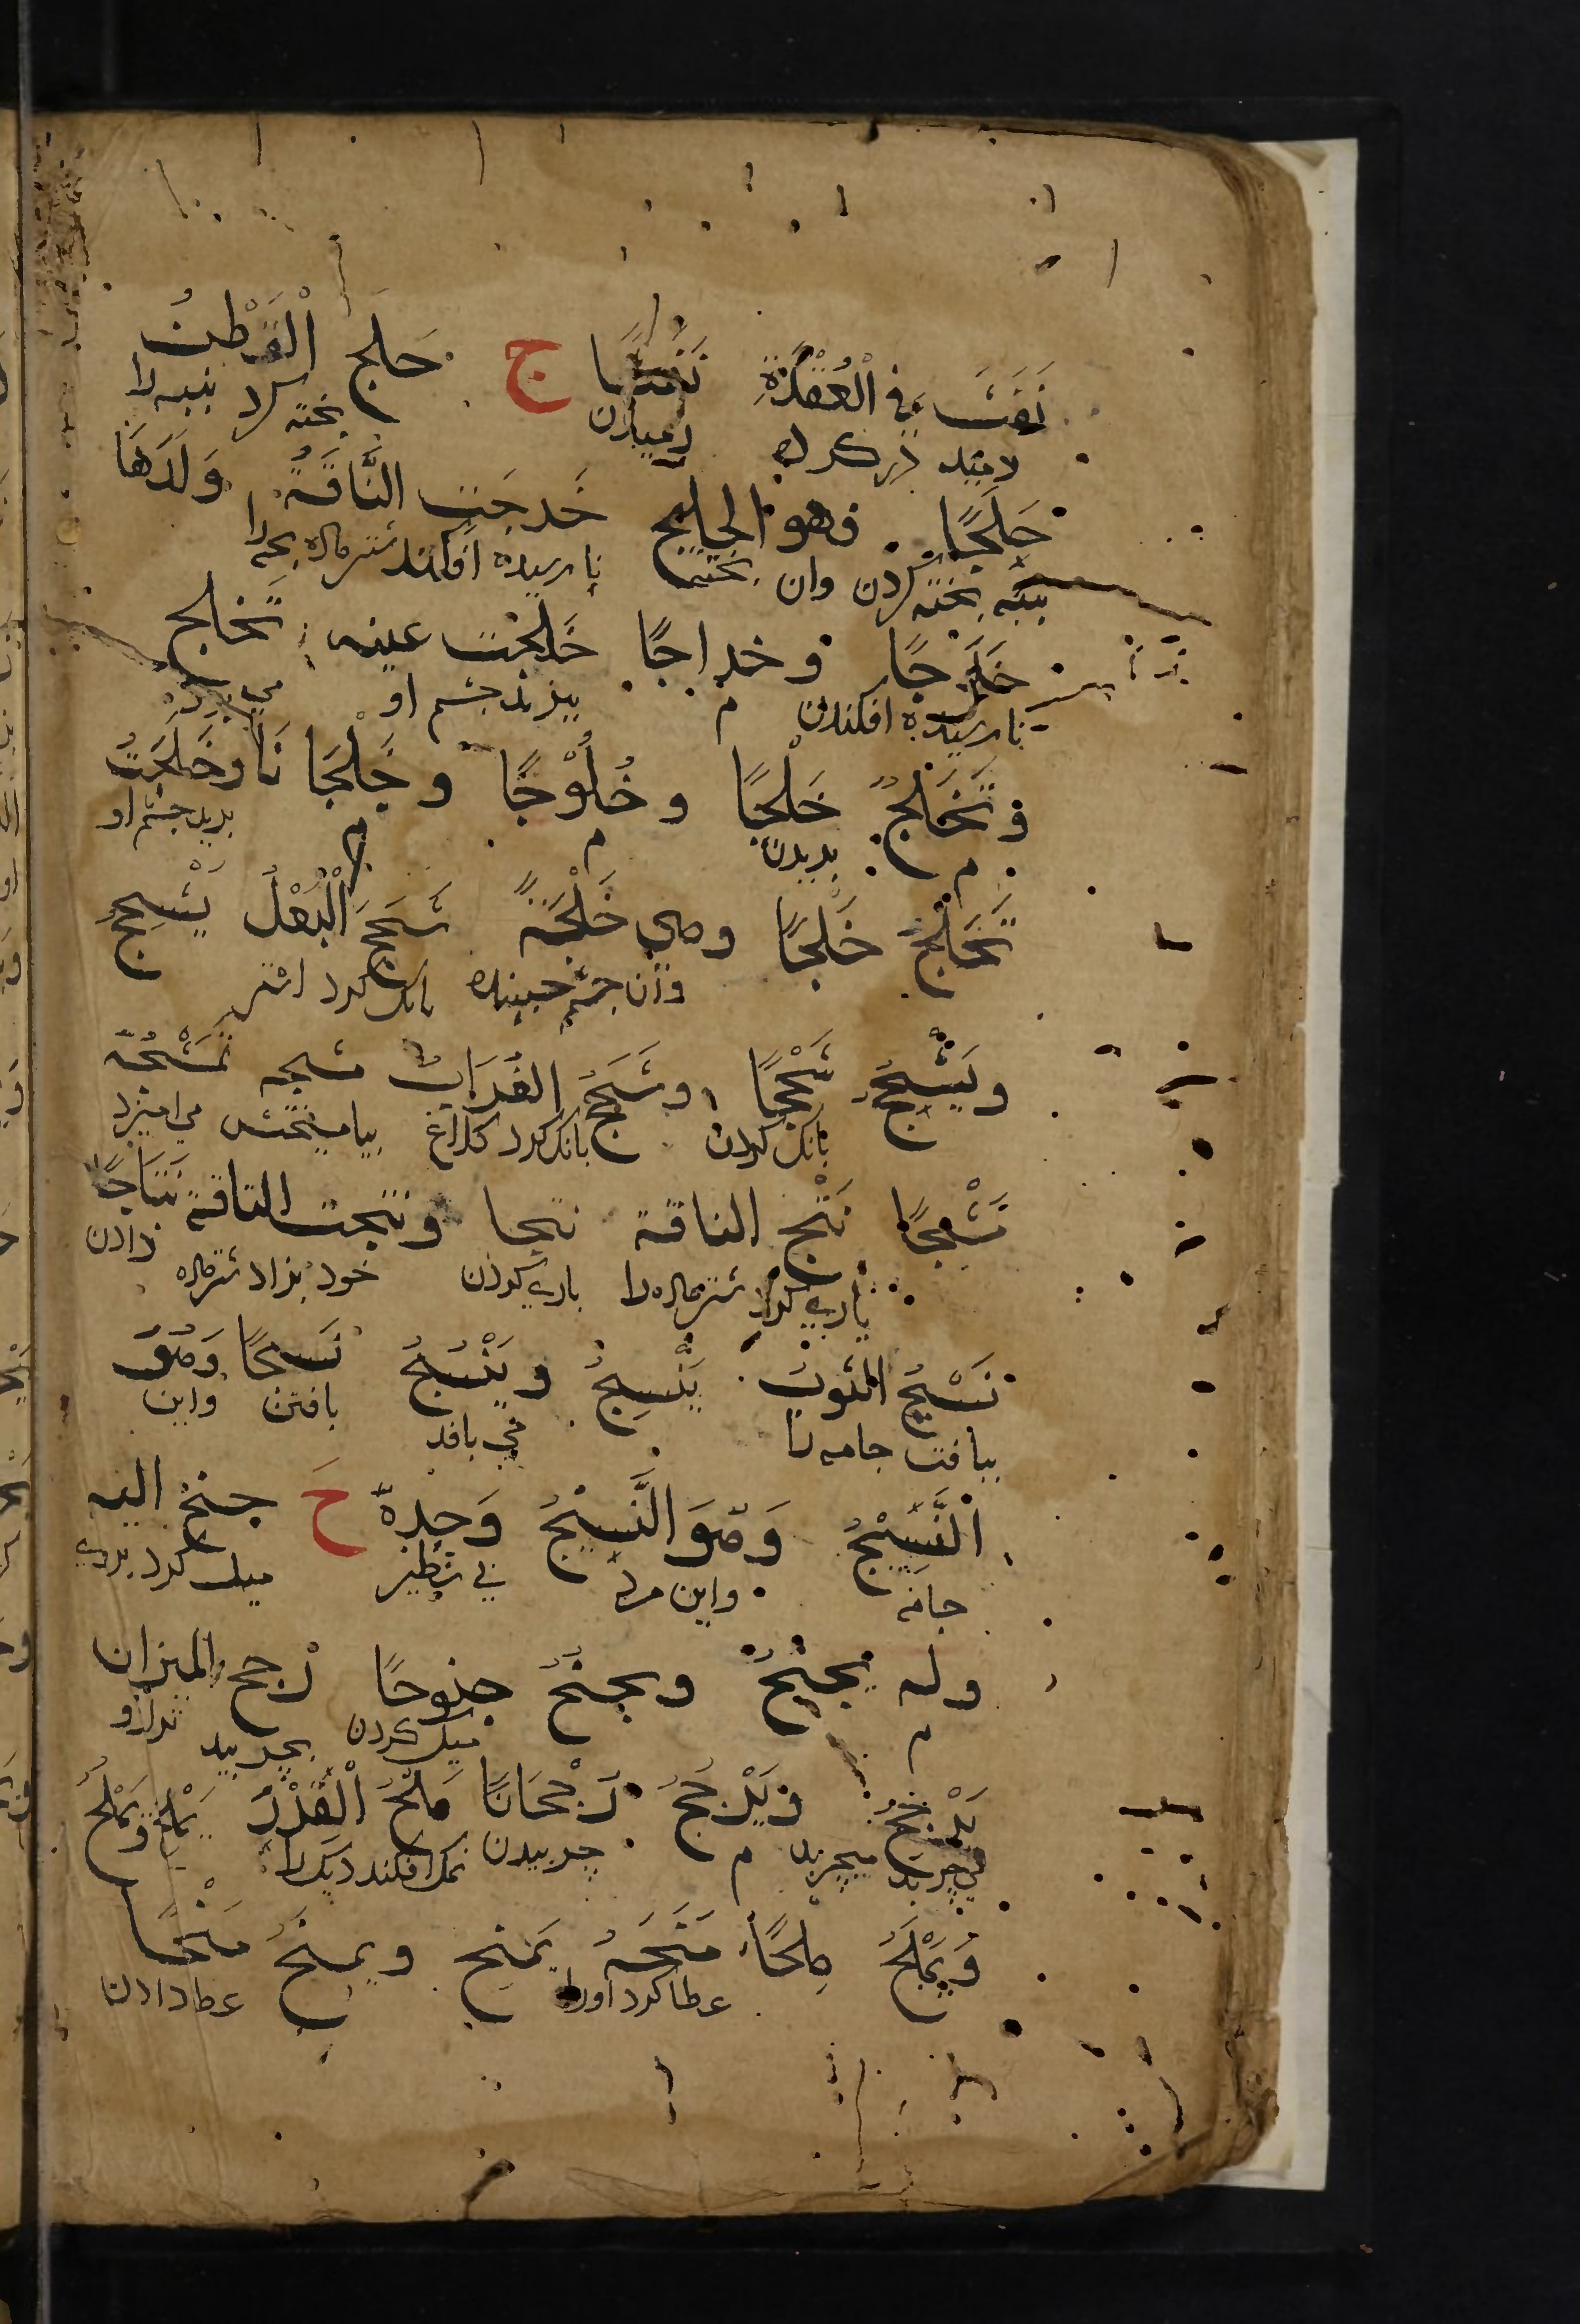 نَفَثَ فِي الْعُقْدَةِ نَفْثًا ج حَلَجَ الْقُطْنَ
دمید در کره دمیدن بخته کرد پنبه را
حَلْجًا فهو الحليج خَدَجَتِ النَّاقَةُ وَلَدَهَا
پنبه بخته کردن وان بخته نارسیده افکند شتر ماده بچه را
وخداجًا خَلَجَتْ عينه تَخْلِج
نارسیده افکندن م بپرید چشم او می پرد
وتَخْلُجُ خَلْجًا وخُلُوْجًا وخَلَجَانًا وخَلِجَتْ
م پریدن م م پرید چشم او
تَخْلَجُ خَلَجًا وهي خَلْجَة شَحَجَ الْبَغْلُ يَشْحِجُ
وان چشم جنبنده بانک کرد استر
ويَشْحَجُ شَحْجًا وشَحَجَ الغُرَابُ مشجه يَمْشُجُه
بانک کردن بانک کرد کلاغ بیامیختش می امیزد
مَشْجًا نَتَجَ الناقة نتجا ونتجت الناقة نِتَاجًا
یاری کرد شتر ماده را یاری کردن خود بزاد شتر ماده زادن
نَسَجَ الثوبَ يَنْسِجُ ويَنْسُجُ نَسجًا وَهُوَ
ببافت جامه را می بافد بافتن واین
النَّسِيْجُ وَهُوَ النَّسِيْجُ وَحْدِهِ ح جنح اليه
جامه واین مرد بی نظیر میل کرد بروی
وله يَجْنِحُ ويجنُحُ جنوحًا رجح الميزان
م میل کردن بچربید ترازو
يَرْجِحُ ويَرْجَحُ رَجْحَانًا مَلَحَ الْقِدْرَ يَمْلِحُ ويَمْلُحُ
می چربد میچربد م چربیدن نمک افکند دیک را
وَيَمْلَحُ مِلحًا مَنَحَهُ يَمْنِح ويمنَحُ مَنْحًا
عطا کرد اورا عطا دادن